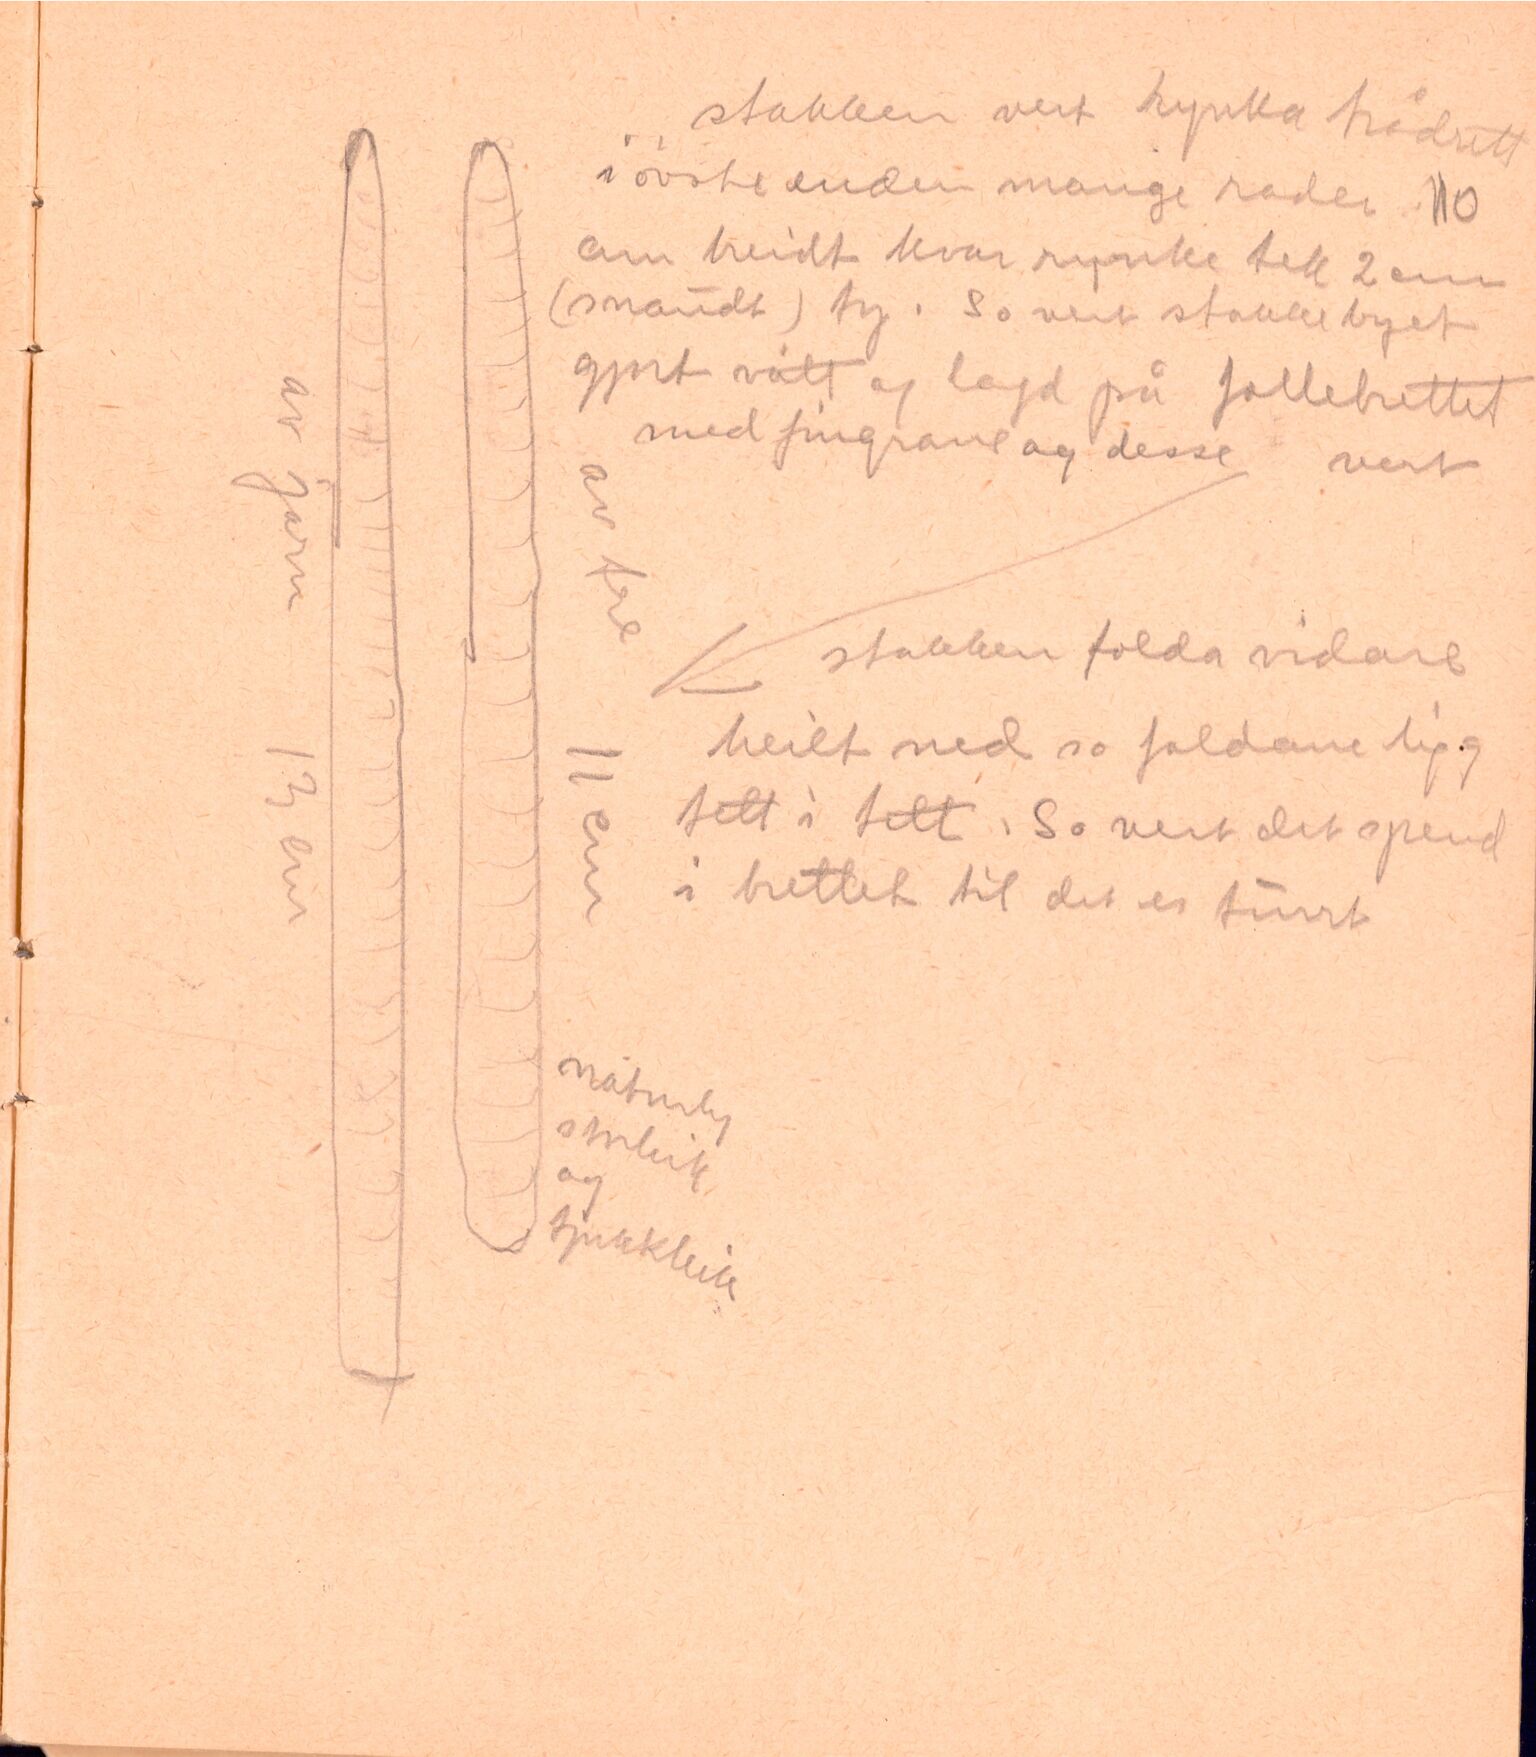 stakken vert rynka trådrett
i øvste enden mange rader 110
cm breidt kvar rynke tek 2 cm
(snaudt) ty. So vert stakketyet
gjort vått og lagd på follebrettet
med fingrane og desse vert
stakken folda vidare
heilt ned so foldane ligg
tett i tett. So vert det spend
i brettet til det er turrt
av jarn 13 cm
av tre 11 cm
naturleg
storleik
og
tjukkleik